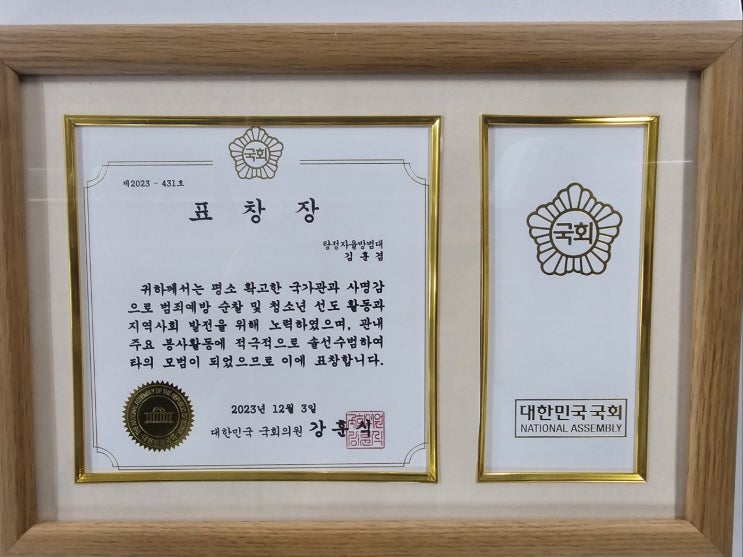 국회
제2023 - 431호
표 창 장
탕정자율방범대
김 훈 겸
귀하께서는 평소 확고한 국가관과 사명감
으로 범죄예방 순찰 및 청소년 선도 활동과
지역사회 발전을 위해 노력하였으며, 관내
주요 봉사활동에 적극적으로 솔선수범하여
타의 모범이 되었으므로 이에 표창합니다.
2023년 12월 3일
대한민국 국회의원 강 훈 식
국회
대한민국국회
NATIONAL ASSEMBLY